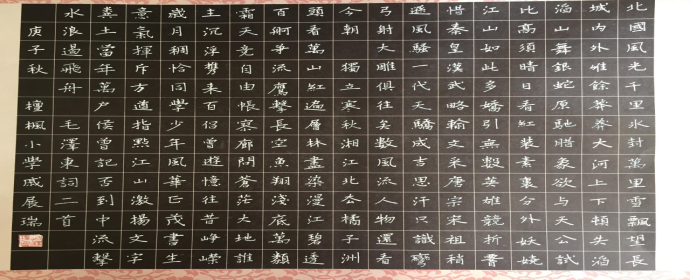 北國風光千里冰封萬里雪飄望長
城內外惟餘莽莽大河上下頓失滔
滔山舞銀蛇原馳蠟象欲與天公試
比高須晴日看紅裝素裹分外妖嬈
江山如此多嬌引無數英雄競折腰
惜秦皇漢武略輸文采唐宗宋祖稍
遜風騷一代天驕成吉思汗只識彎
弓射大雕俱往矣數風流人物還看
今朝 獨立寒秋湘江北去橘子洲
頭看萬山紅遍層林盡染漫江碧透
百舸爭流鷹擊長空魚翔淺底萬類
霜天競自由悵寥廓問蒼茫大地誰
主沉浮攜來百侶曾遊憶往昔崢嶸
歲月稠恰同學少年風華正茂書生
意氣揮斥方遒指點江山激揚文字
糞土當年萬戶侯曾記否到中流擊
水浪遏飛舟 毛澤東詞二首
庚子秋 檀楓小學戚展瑞